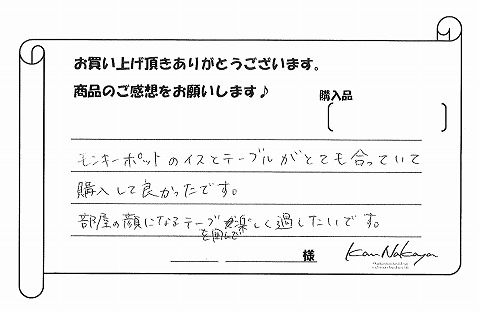 お買い上げ頂きありがとうございます。
商品のご感想をお願いします♪
購入品
モンキーポットのイスとテーブルがとても合っていて
購入して良かったです。
部屋の顔になるテーブルを囲んで楽しく過したいです。
様
Kan Nakaya